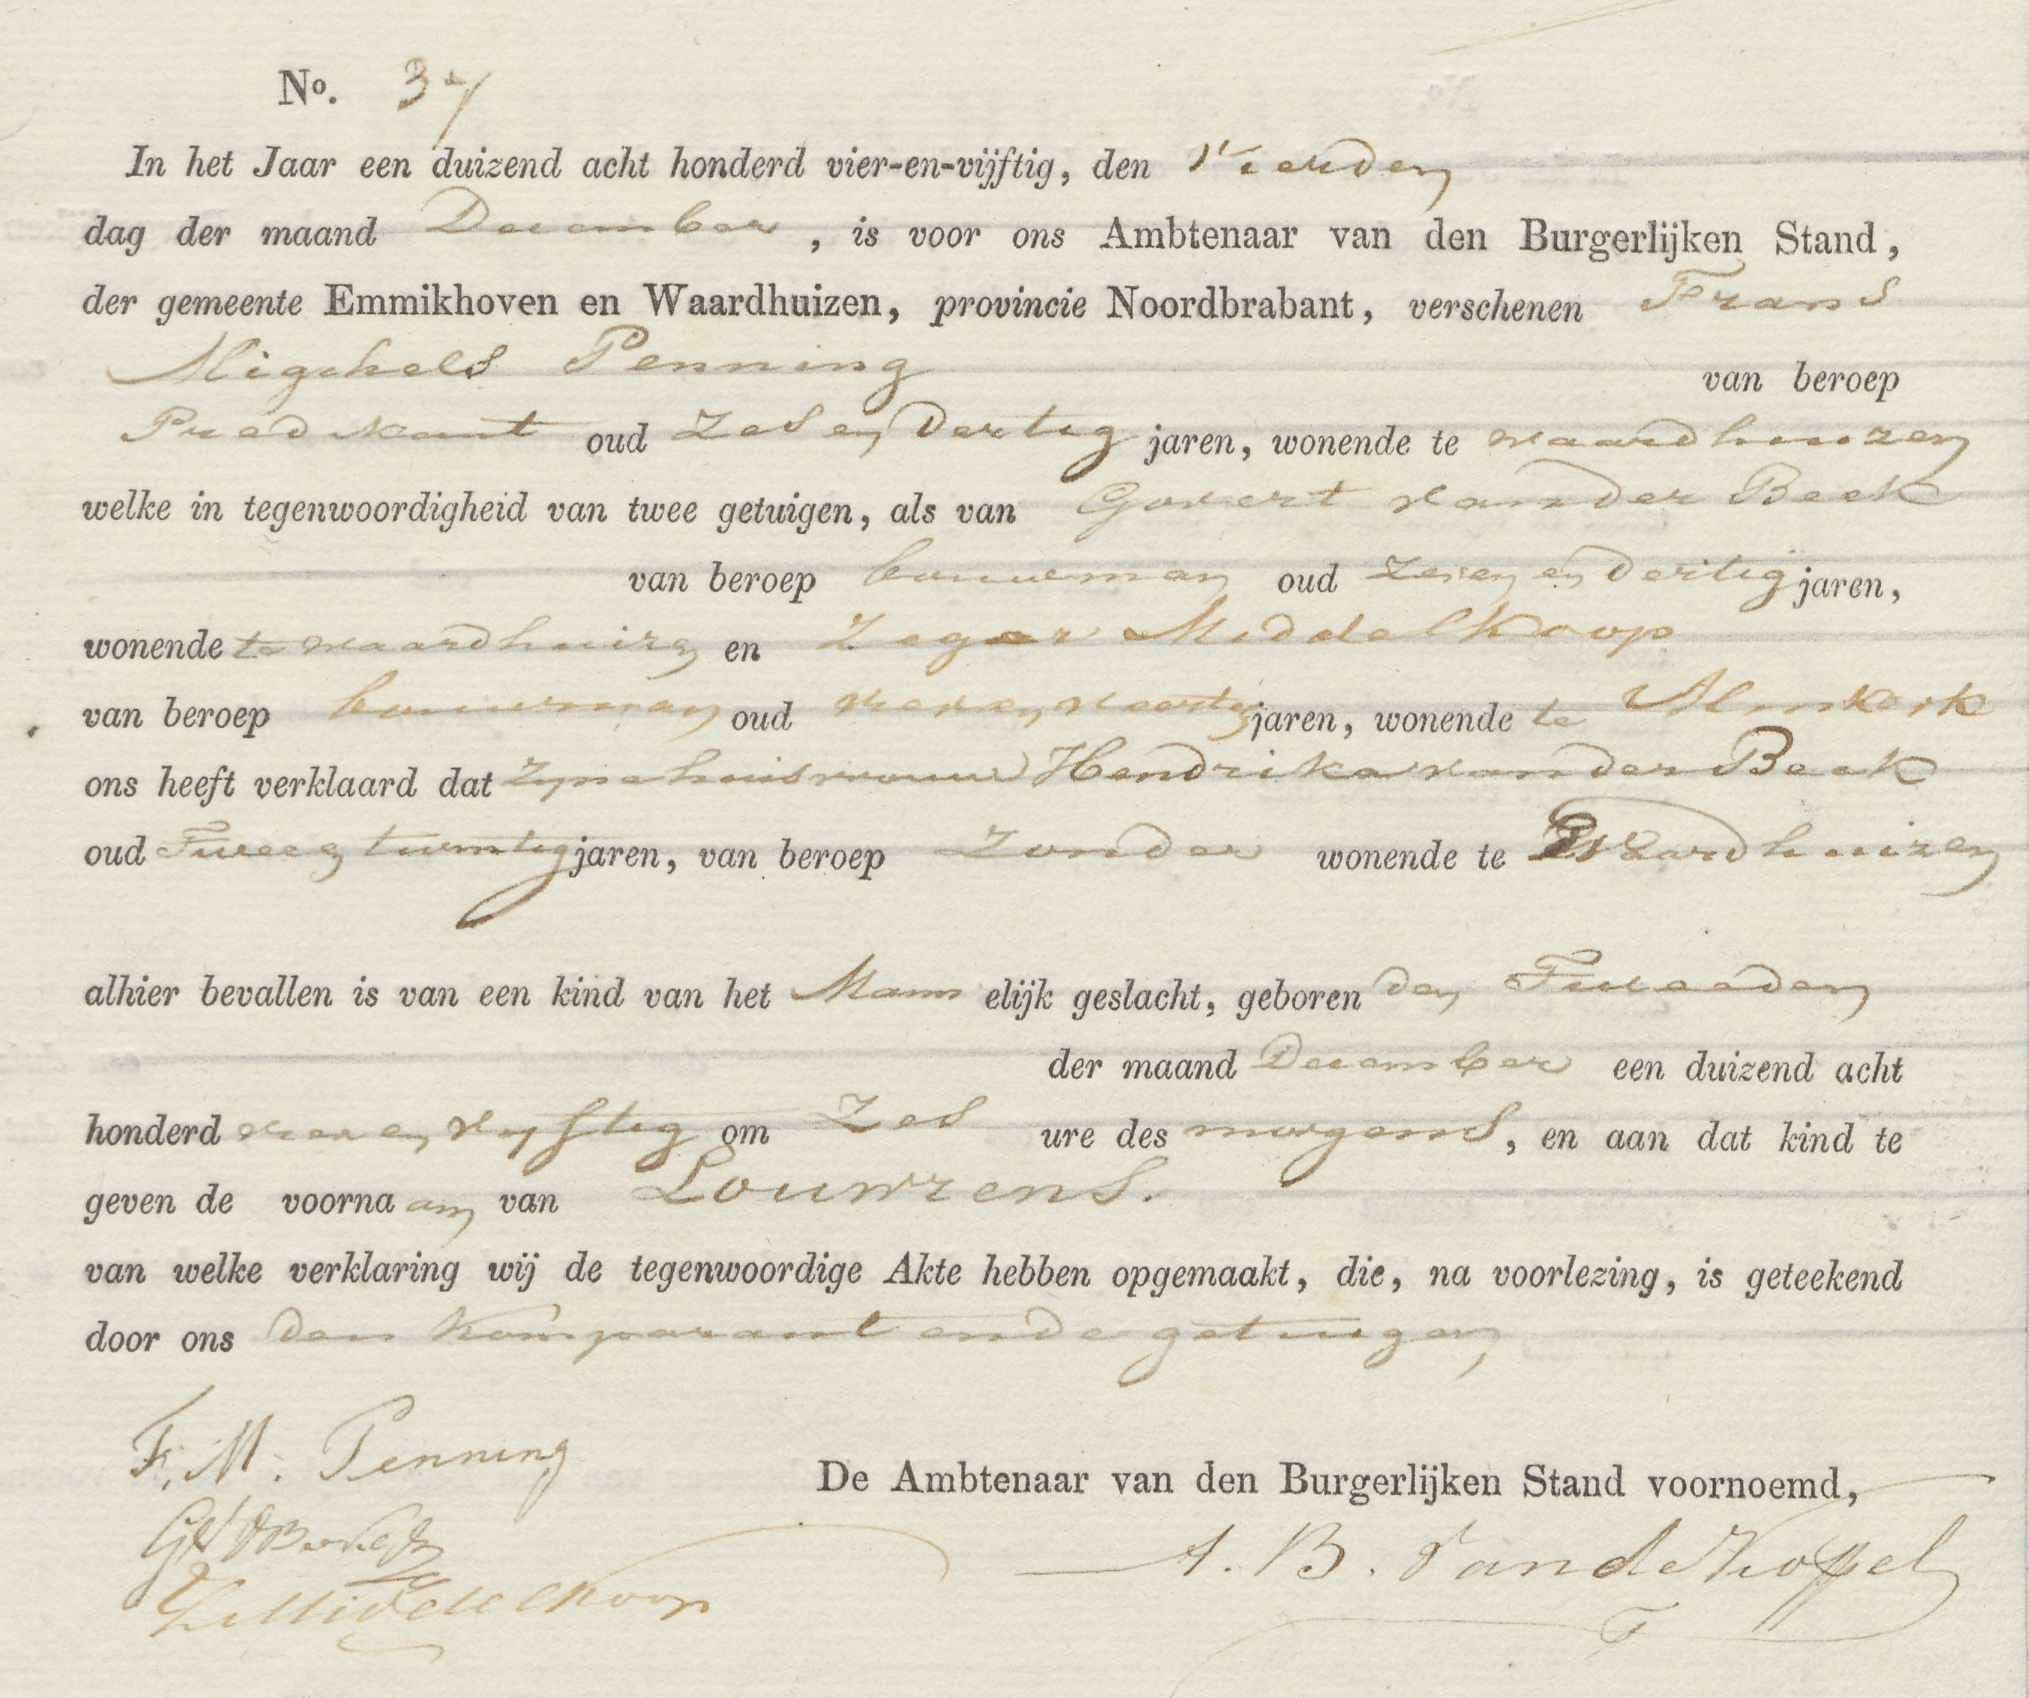 No. 37
In het Jaar een duizend acht honderd vier-en-vijftig, den vierden
dag der maand December, is voor ons Ambtenaar van den Burgerlijken Stand,
der gemeente Emmikhoven en Waardhuizen, provincie Noordbrabant, verschenen Frans
Migchels Penning van beroep
Predikant oud Zes en Dertig jaren, wonende te waardhuizen
welke in tegenwoordigheid van twee getuigen, als van Govert van der Beek
van beroep bouwman oud zeven en Dertig jaren,
wonende te waardhuizen en Zeger Middelkoop
van beroep bouwman oud vier en veertig jaren, wonende te Almkerk
ons heeft verklaard dat zyne huisvrouw Hendrika van der Beek
oud Twee en twintig jaren, van beroep Zonder wonende te Waardhuizen
alhier bevallen is van een kind van het Mann elijk geslacht, geboren den Tweeden
der maand December een duizend acht
honderd vier en vyftig om Zes ure des morgens, en aan dat kind te
geven de voorna am van Louwrens.
van welke verklaring wij de tegenwoordige Akte hebben opgemaakt, die, na voorlezing, is geteekend
door ons den komparant en de getuigen
F. M. Penning
De Ambtenaar van den Burgerlijken Stand voornoemd,
A. B. Van de Koppel
Z Middelkoop